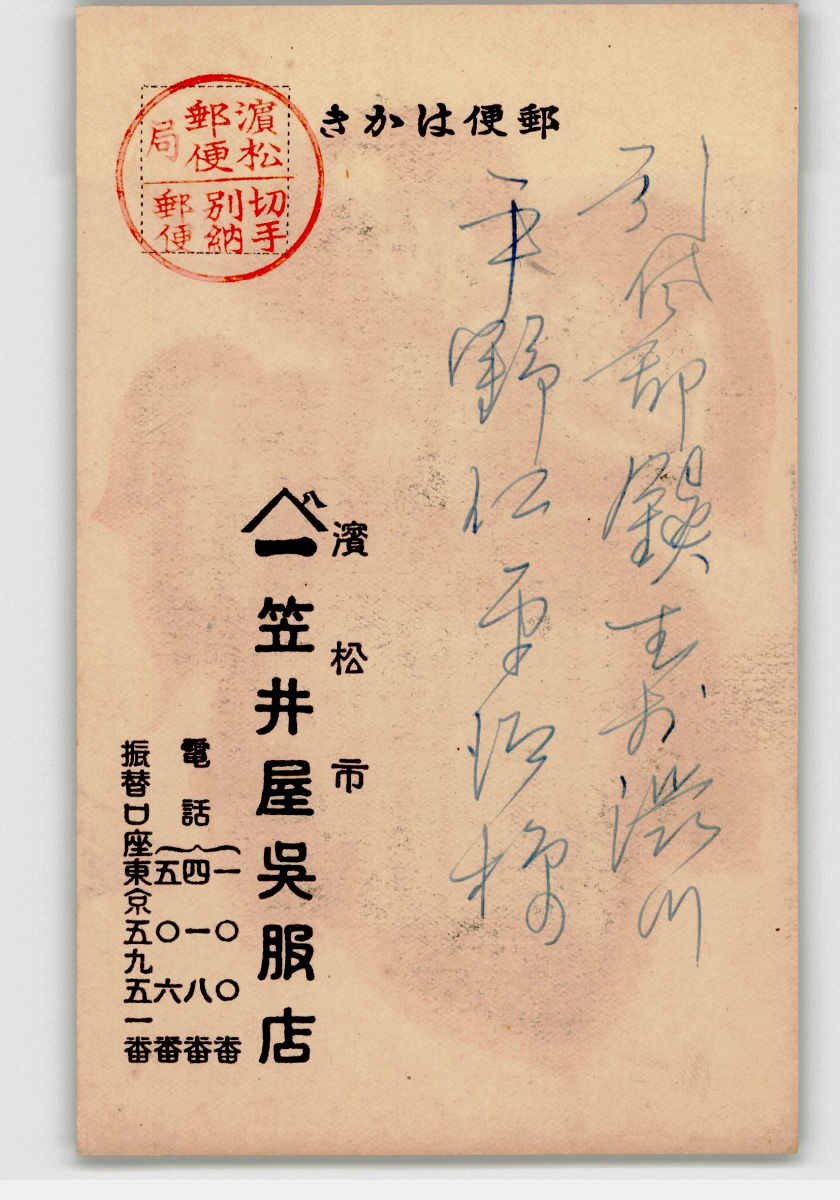 郵便はかき
濱松
郵便
局
切手
別納
郵便
引佐郡鎮玉村澁川
平野仁 様
濱松市
笠井屋呉服店
電話
一〇〇番
四一八番
五〇六番
振替口座東京五九五一番